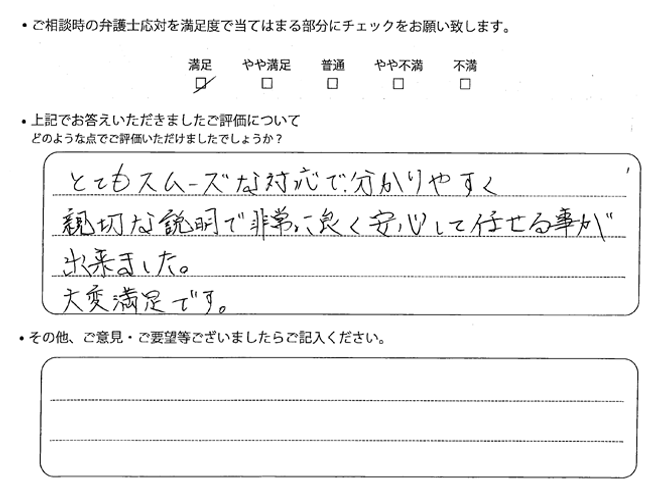 ・ご相談時の弁護士応対を満足度で当てはまる部分にチェックをお願い致します。
満足 やや満足 普通 やや不満 不満
・上記でお答えいただきましたご評価について
どのような点でご評価いただけましたでしょうか？
とてもスムーズな対応で分かりやすく
親切な説明で非常に良く安心して任せる事が
出来ました。
大変満足です。
・その他、ご意見・ご要望等ございましたらご記入ください。